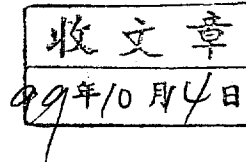 收文章
99年10月4日